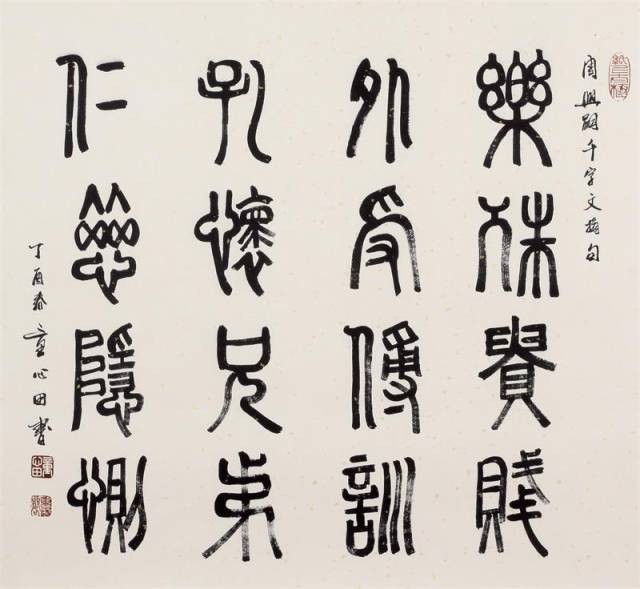 周興嗣千字文摘句
樂殊貴賤
外受傅訓
孔懷兄弟
仁慈隱惻
丁酉春童心田書